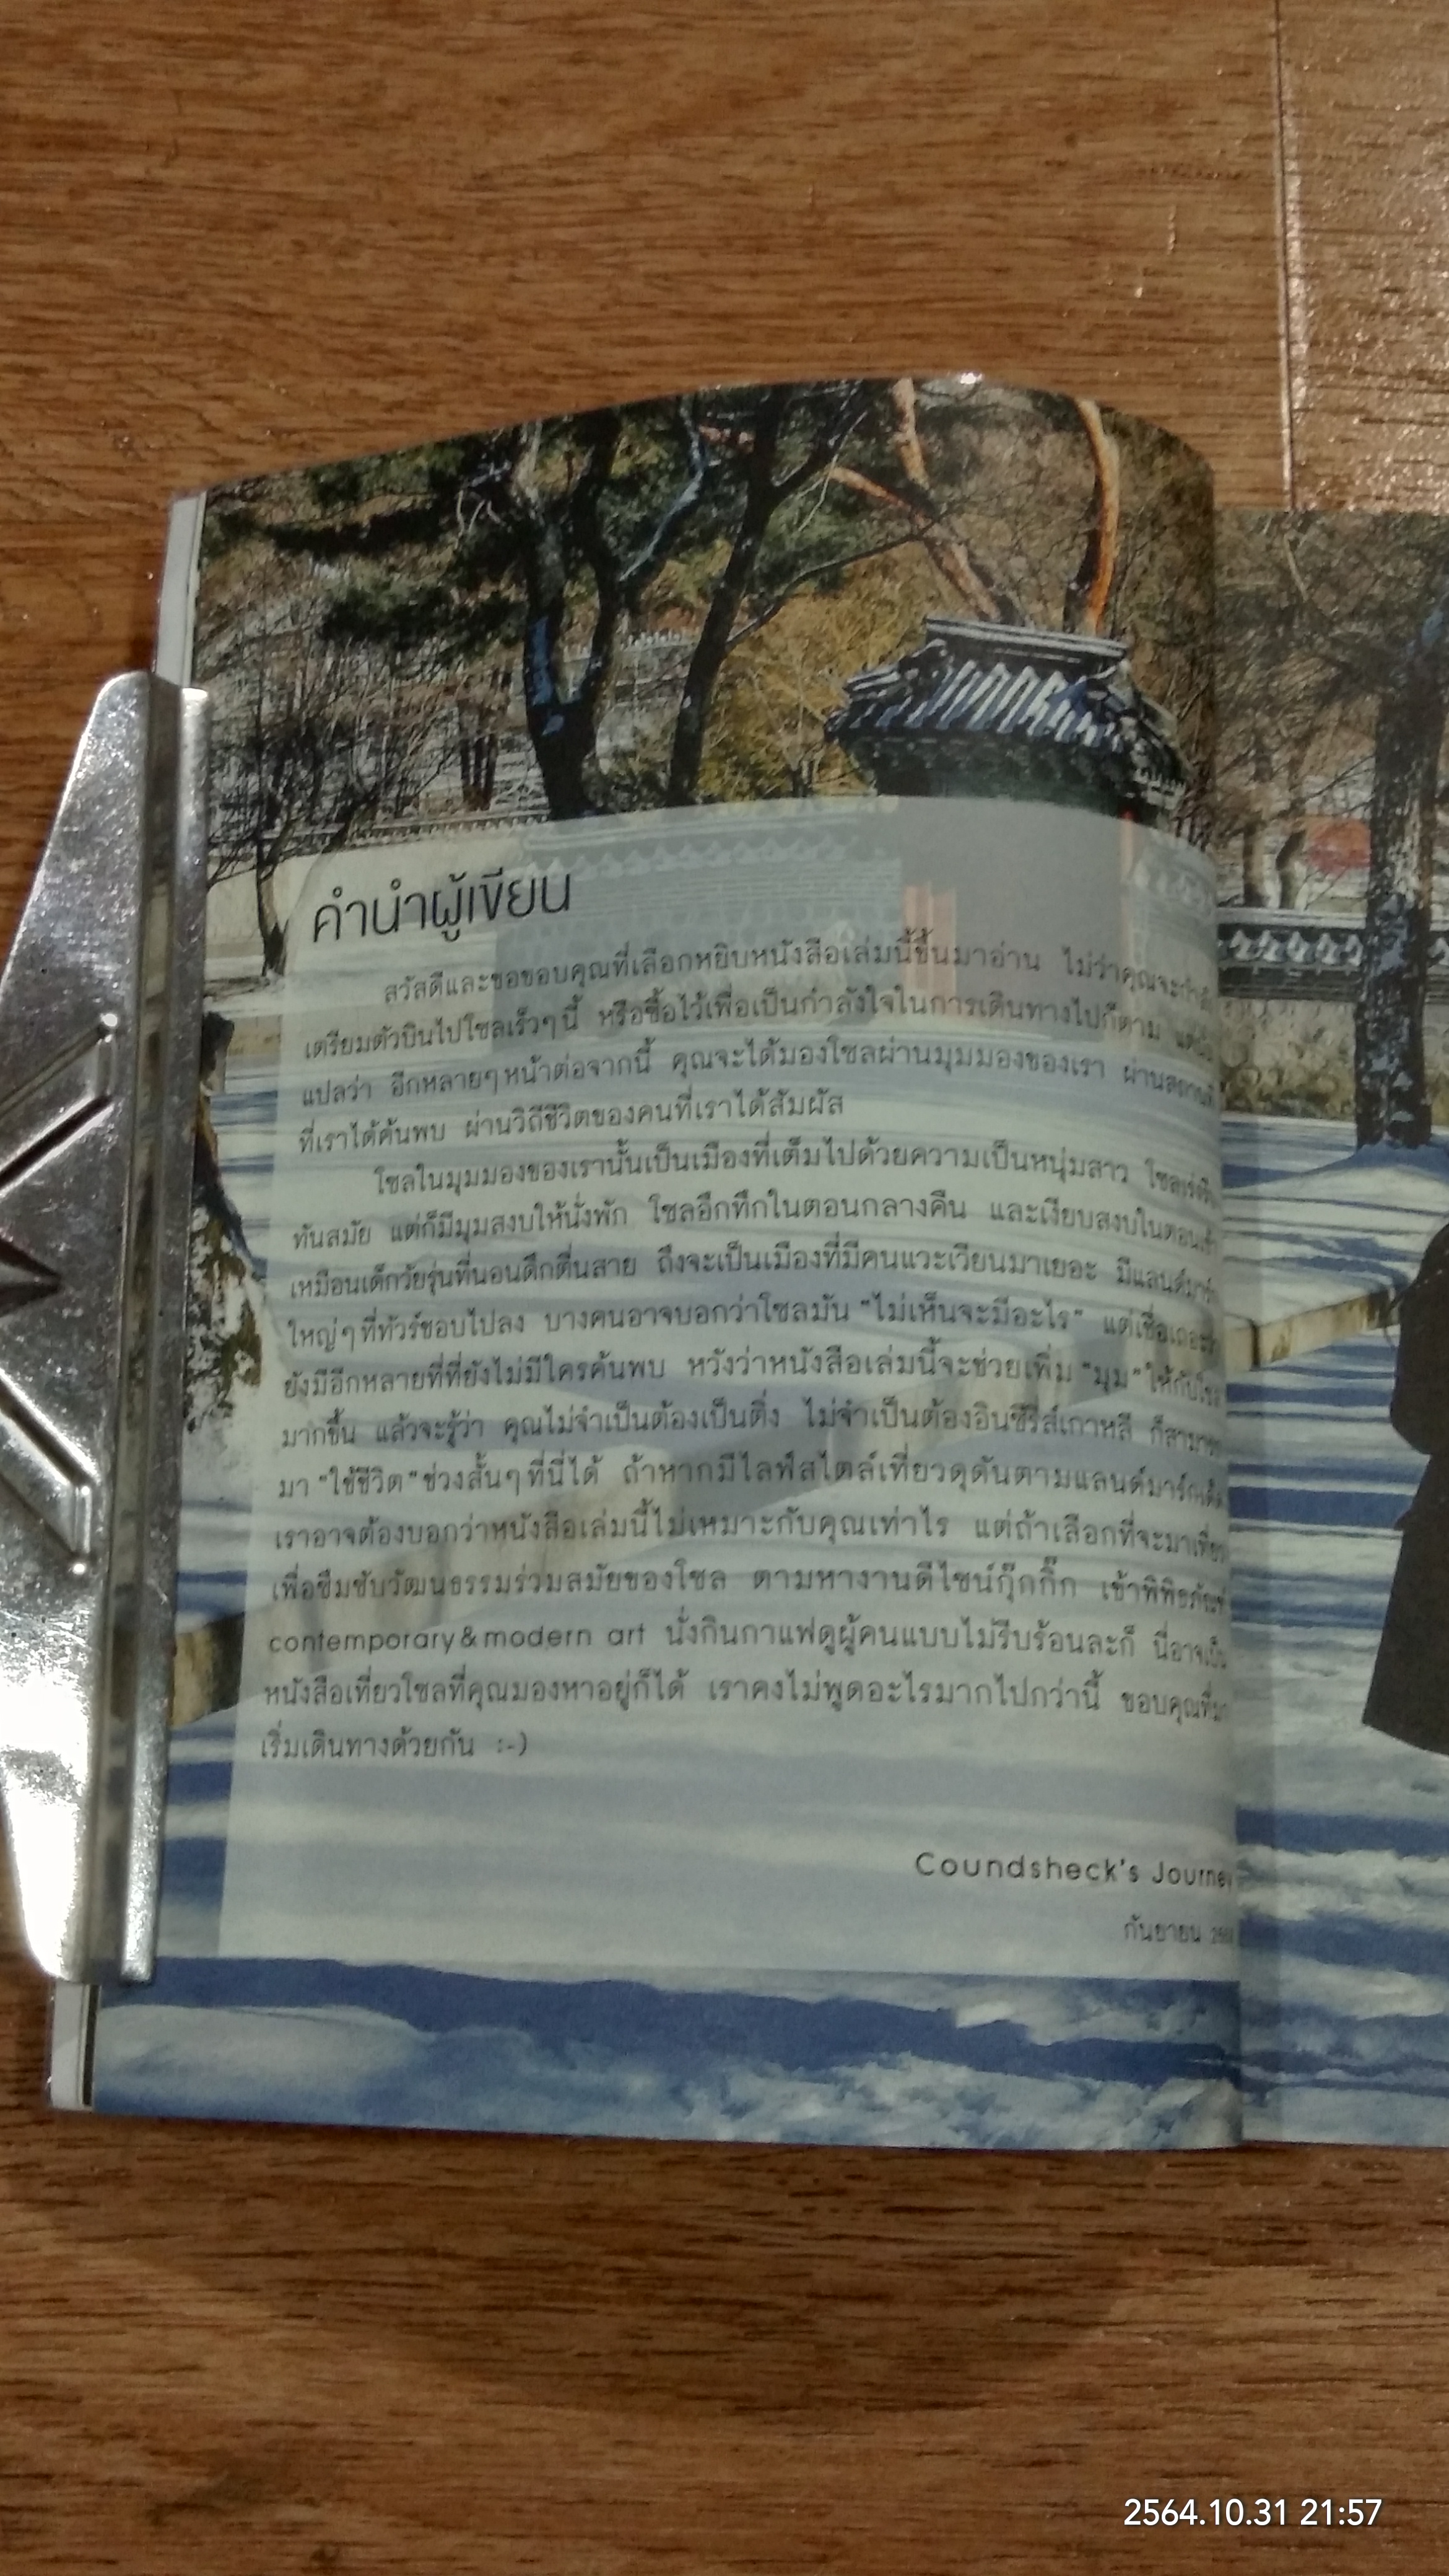 คำนำผู้เขียน
สวัสดีและขอขอบคุณที่เลือกหยิบหนังสือเล่มนี้ขึ้นมาอ่าน ไม่ว่าคุณจะกำลัง
เตรียมตัวบินไปโซลเร็วๆนี้ หรือซื้อไว้เพื่อเป็นกำลังใจในการเดินทางไปก็ตาม
แปลว่า อีกหลายๆหน้าต่อจากนี้ คุณจะได้มองโซลผ่านมุมมองของเรา ผ่านสถานที่
ที่เราได้ค้นพบ ผ่านวิถีชีวิตของคนที่เราได้สัมผัส
โซลในมุมมองของเรานั้นเป็นเมืองที่เต็มไปด้วยความเป็นหนุ่มสาว
ทันสมัย แต่ก็มีมุมสงบให้นั่งพัก โซลอึกทึกในตอนกลางคืน และเงียบสงบในตอนเช้า
เหมือนเด็กวัยรุ่นที่นอนดึกตื่นสาย ถึงจะเป็นเมืองที่มีคนแวะเวียนมาเยอะ มีแลนด์มาร์ก
ใหญ่ๆที่ทัวร์ชอบไปลง บางคนอาจบอกว่าโซลมัน "ไม่เห็นจะมีอะไร" แต่เชื่อเถอะ
ยังมีอีกหลายที่ที่ยังไม่มีใครค้นพบ หวังว่าหนังสือเล่มนี้จะช่วยเพิ่ม "มุม" ให้กับโซล
มากขึ้น แล้วจะรู้ว่า คุณไม่จำเป็นต้องเป็นติ่ง ไม่จำเป็นต้องอินซีรีส์เกาหลี ก็สามารถ
มา "ใช้ชีวิต" ช่วงสั้นๆที่นี่ได้ ถ้าหากมีไลฟ์สไตล์เที่ยวดุดันตามแลนด์มาร์กเด็ด
เราอาจต้องบอกว่าหนังสือเล่มนี้ไม่เหมาะกับคุณเท่าไร แต่ถ้าเลือกที่จะมาเที่ยว
เพื่อซึมซับวัฒนธรรมร่วมสมัยของโซล ตามหางานดีไซน์กุ๊กกิ๊ก เข้าพิพิธภัณฑ์
contemporary&modern art นั่งกินกาแฟดูผู้คนแบบไม่รีบร้อนละก็ นี่อาจเป็น
หนังสือเที่ยวโซลที่คุณมองหาอยู่ก็ได้ เราคงไม่พูดอะไรมากไปกว่านี้ ขอบคุณที่มา
เริ่มเดินทางด้วยกัน :-)
Coundsheck's Journey
กันยายน
2564.10.31 21:57